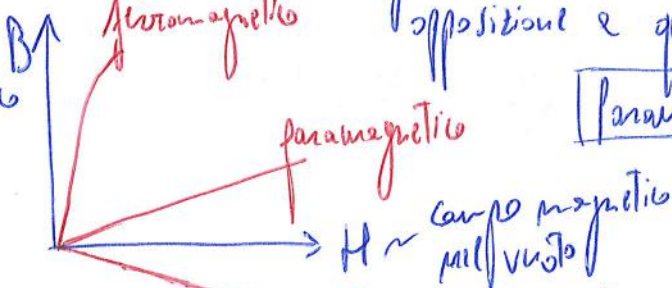 B
ferromagnetico
opposizione a
Param
paramagnetico
H ~ campo magnetico
nel vuoto